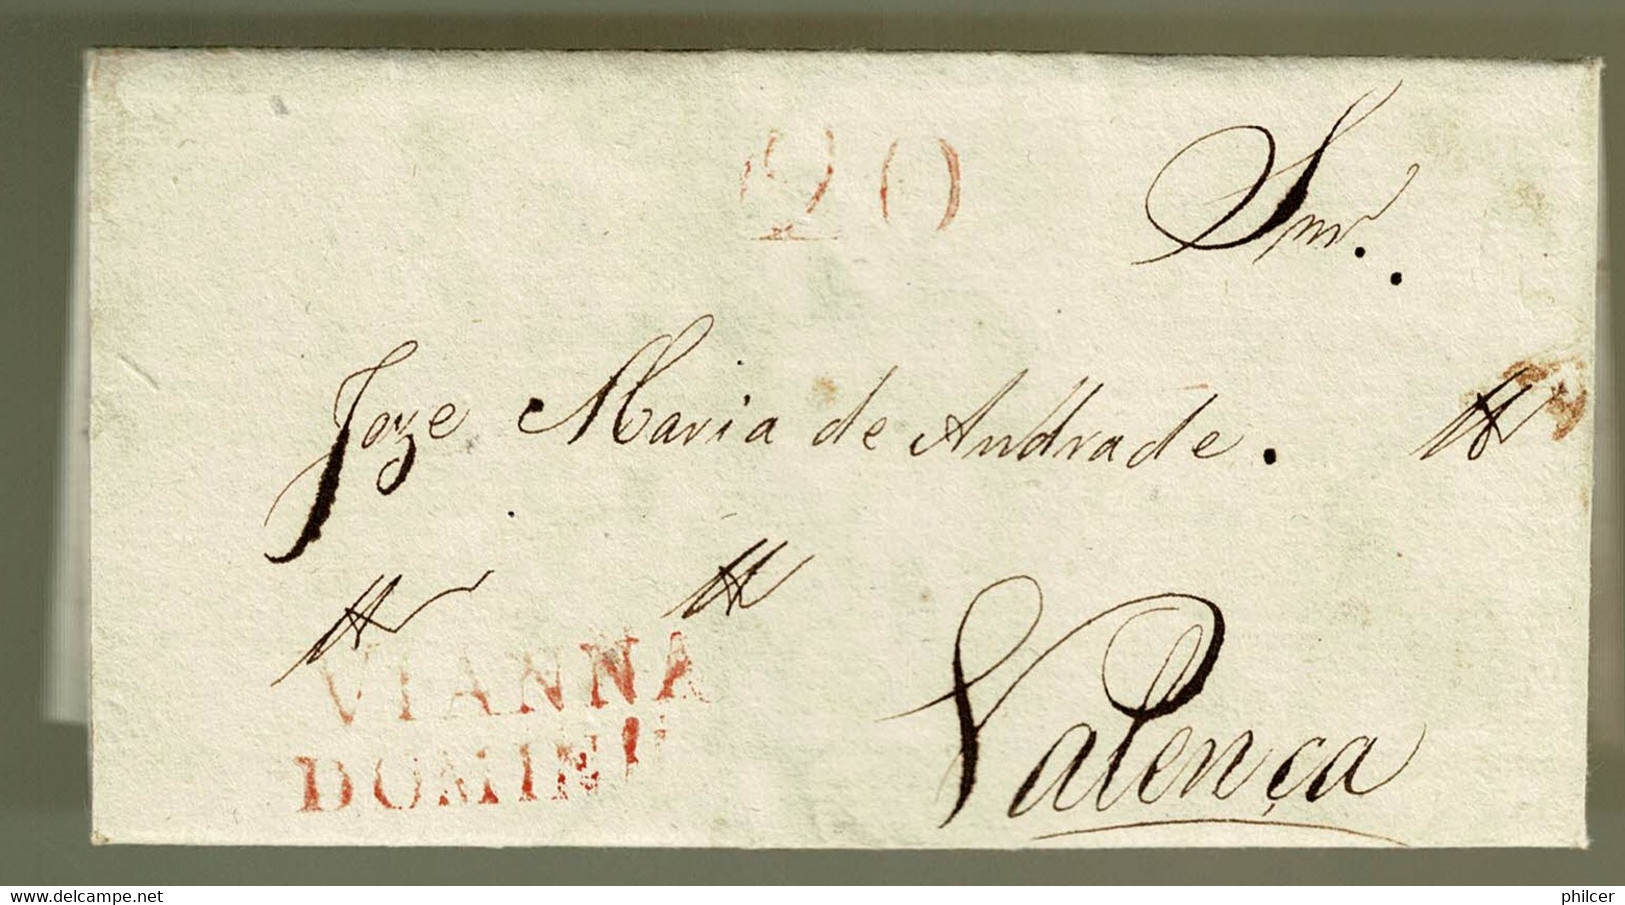 20
Snr.
Joze Maria de Andrade.
VIANNA
DOMINH
Valença
delcampe.net
philcer